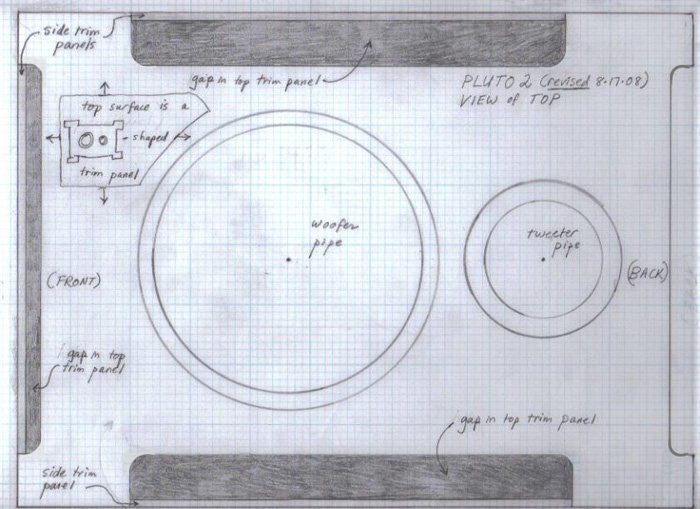 side trim
panels
gap in top trim panel
PLUTO 2 (revised 8.17.08)
VIEW of TOP
top surface is a
- shaped
trim panel
woofer
pipe
tweeter
pipe
(FRONT)
(BACK)
gap in top
trim panel
gap in top trim panel
side trim
panel